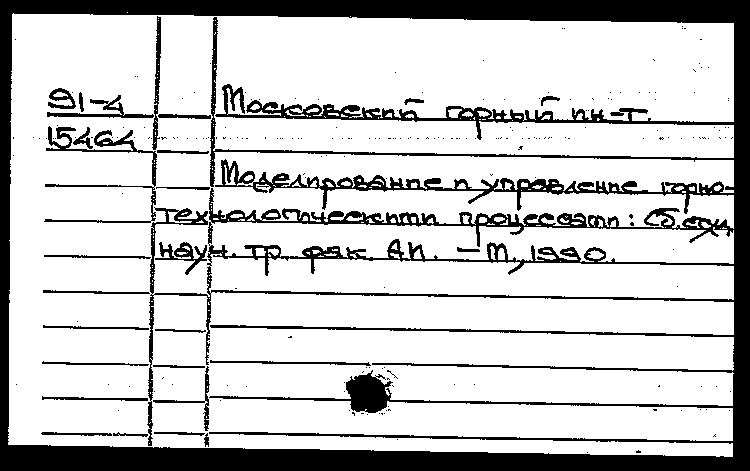 91-4 Московский горный ин-т.
15464
Моделирование и управление горно-
технологическими процессами: Сб. студ.
науч. тр. фак. АИ. – М., 1990.